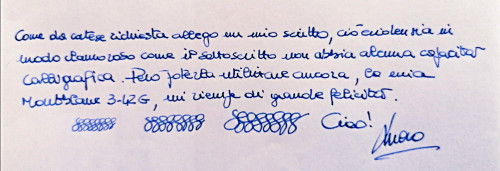 Come da cortese richiesta allego un mio scritto, ciò evidenzia in
modo clamoroso come il sottoscritto non abbia alcuna capacità
calligrafica. Però poterla utilizzare ancora, la mia
Montblanc 3-42G, mi riempe di grande felicità.
Ciao!